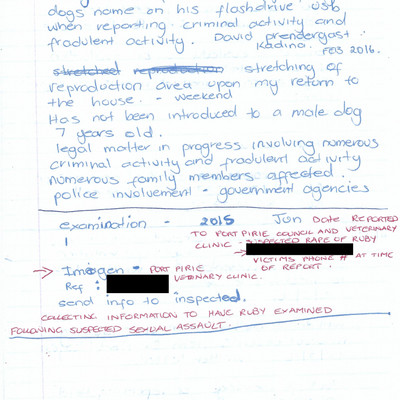 dogs name on his flashdrive usb
when reporting criminal activity and
frodulent activity. David prendergast.
Kadina. FEB 2016.
stretched reproduction stretching of
reproduction area upon my return to
the house. - weekend
Has not been introduced to a male dog
7 years old.
legal matter in progress involving numerous
criminal activity and frodulent activity
numerous family members affected.
police involvement - government agencies
examination - 2015 Jun DATE REPORTED
TO PORT PIRIE COUNCIL AND VETERINARY
CLINIC - SUSPECTED RAPE OF RUBY
VICTIMS PHONE # AT TIME
OF REPORT.
Imogen - PORT PIRIE
Ref : VETINARY CLINIC.
send info to inspected.
COLLECTING INFORMATION TO HAVE RUBY EXAMINED
FOLLOWING SUSPECTED SEXUAL ASSAULT.